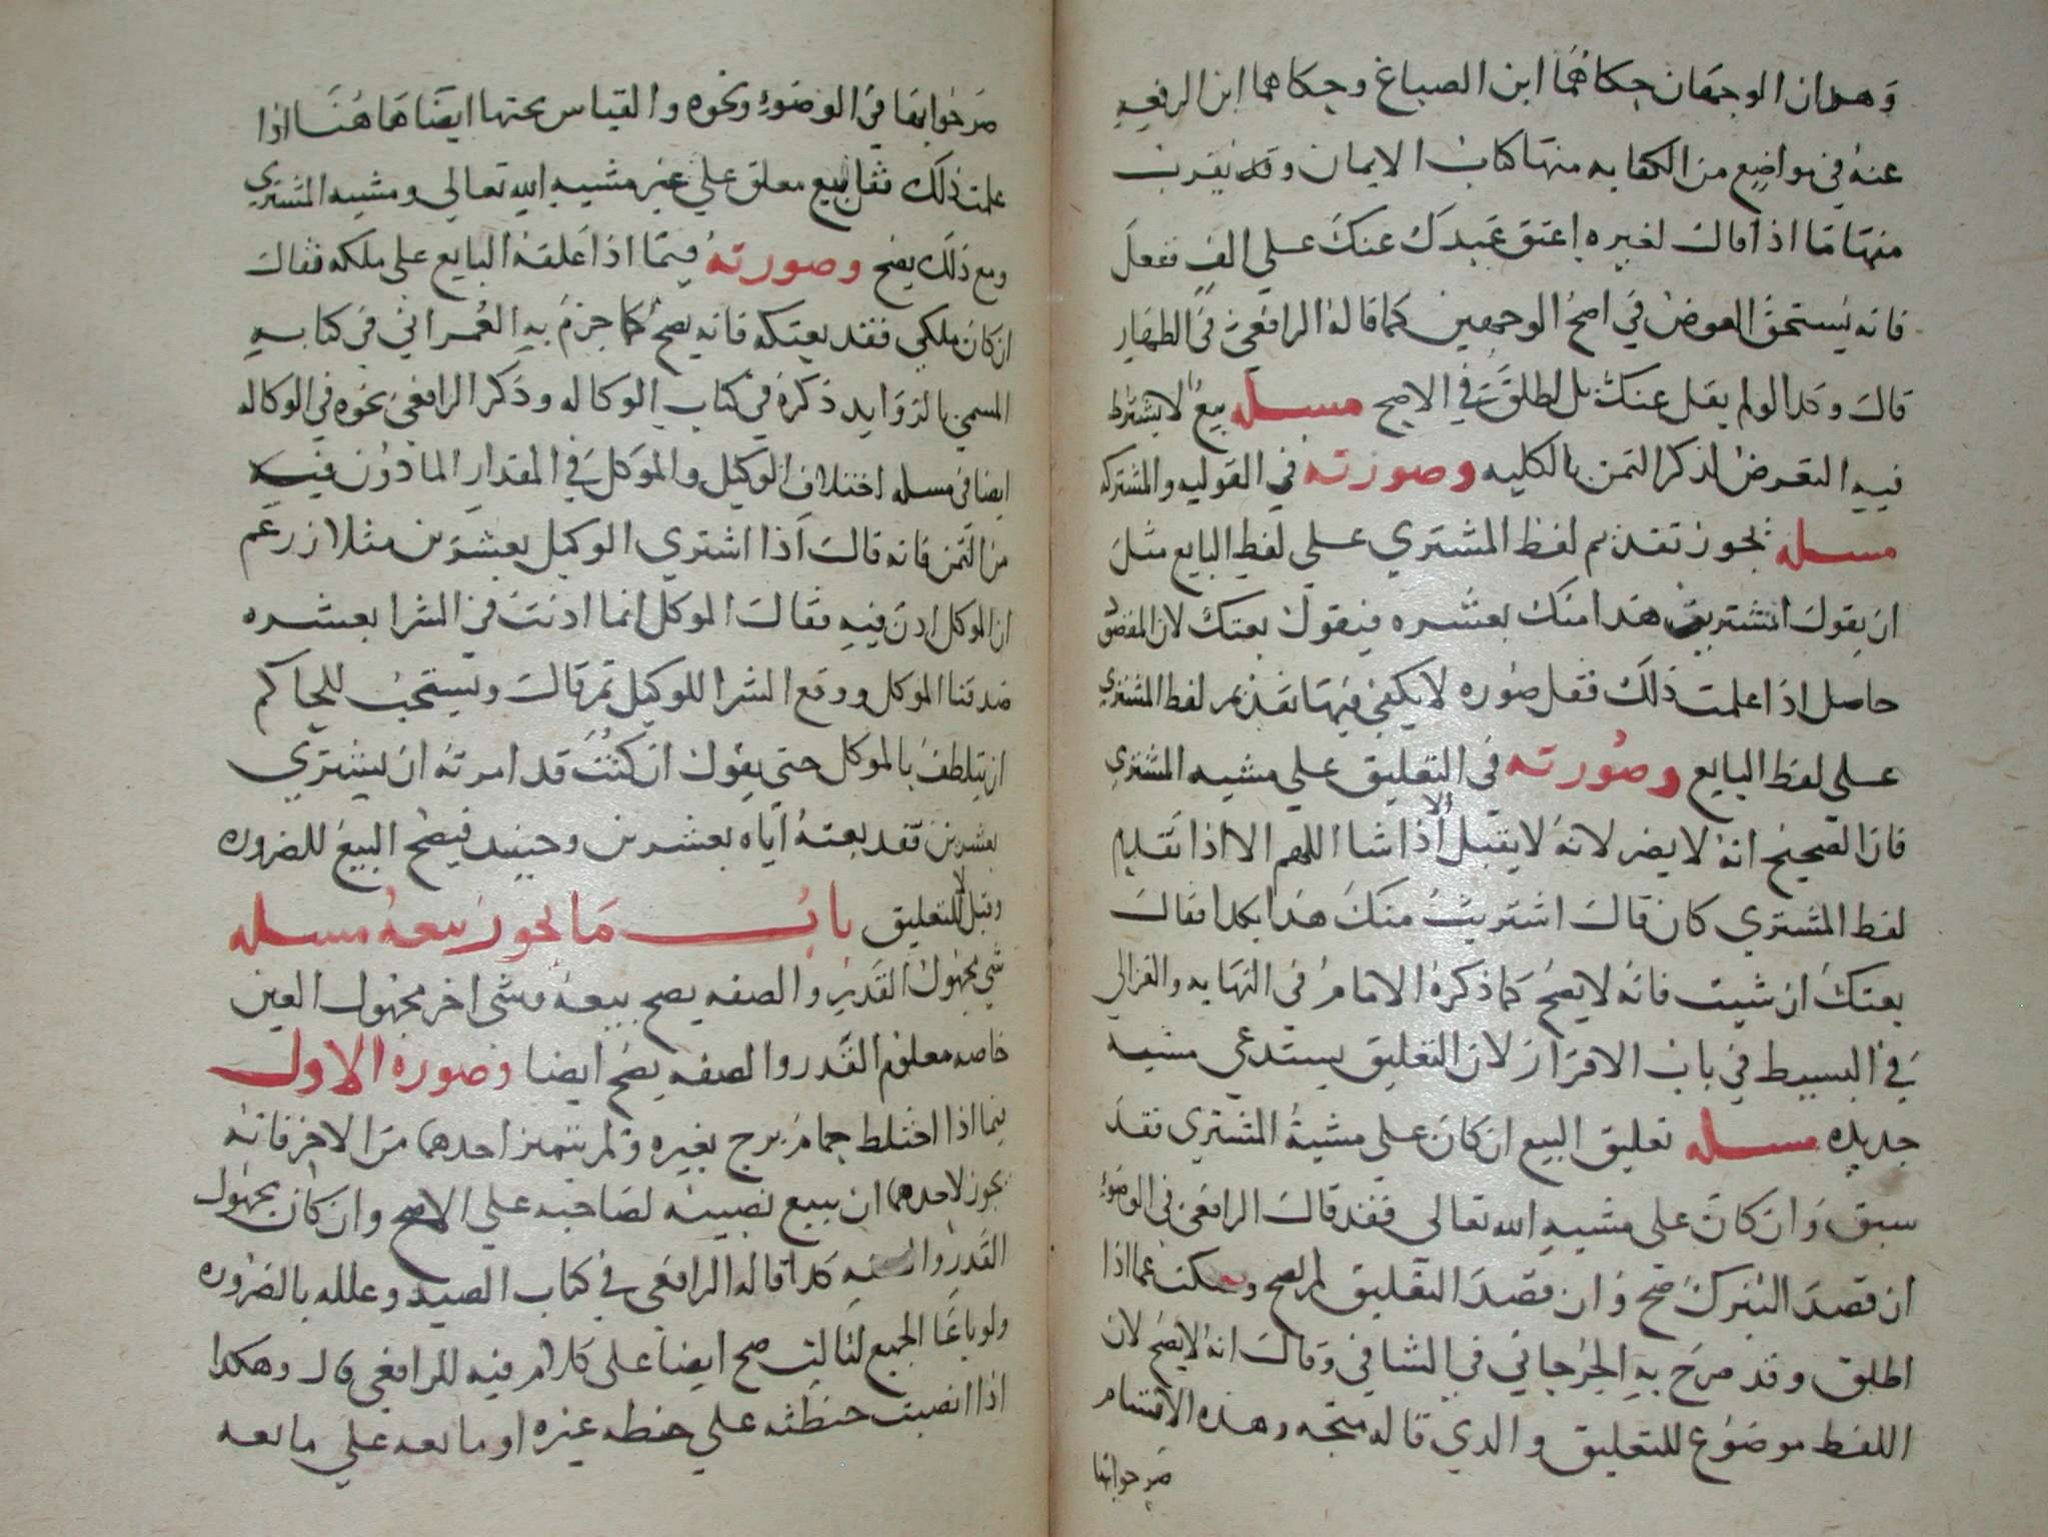 وهذان الوجهان حكاهما ابن الصباغ وحكاهما ابن الرفعه
عنه في مواضع من الكفايه منها كتاب الايمان وقد يقرب
منها ما اذا قال لغيره اعتق عبدك عنك علي الف ففعل
فانه يستحق العوض في اصح الوجهين كما قاله الرافعي في الظهار
قال وكذا لو لم يقل عنك بل اطلق في الاصح مسله بيع لا يشترط
فيه التعرض لذكر الثمن بالكليه وصورته في التوليه والمشتركه
مسله يجوز تقديم لفظ المشتري علي لفظ البايع مثل
ان يقول اشتريت هذا منك بعشره فيقول بعتك لان المقصود
حاصل اذا علمت ذلك فقل صوره لا يكفي فيها تقديم لفظ المشتري
علي لفظ البايع وصورته في التعليق علي مشيه المشتري
فان الصحيح انه لا يضر لانه لا يقبل الا اذا شا اللهم الا اذا تقديم
لفظ المشتري كان قال اشتريت منك هذا بكذا فقال
بعتك ان شيت فانه لا يصح كما ذكره الامام في النهايه والغزالي
في البسيط في باب الاقرار لان التعليق يستدعي مشيه
جديده مسله تعليق البيع ان كان علي مشية المشتري فقد
سبق وان كان علي مشيه الله تعالي فقد قال الرافعي في الوضوء
ان قصد التبرك صح وان قصد التعليق لم يصح وسكت عما اذا
اطلق وقد صرح به الجرجاني في الشافي وقال انه لا يصح لان
اللفظ موضوع للتعليق والدي قاله متجه وهذه الاقسام
صرحوا بها
صرحوا بها في الوضوء ونحوه والقياس بحثها ايضا ها هنا اذا
علمت ذلك فقل بيع معلق علي غير مشيه الله تعالي ومشيه المشتري
ومع ذلك يصح وصورته فيما اذا علقه البايع علي ملكه فقال
ان كان ملكي فقد بعتكه فانه يصح كما جزم به العمراني في كتابه
المسمي بالزوايد ذكره في كتاب الوكاله وذكر الرافعي نحوه في الوكاله
ايضا في مسله اختلاف الوكيل والموكل في المقدار الماذون فيه
من الثمن فانه قال اذا اشتري الوكيل بعشرين مثلا زعم
ان الموكل اذن فيه فقال الموكل انما اذنت في الشرا بعشره
صدقنا الموكل ووقع الشرا للوكيل ثم قال ويستحب للحاكم
ان يتلطف بالموكل حتي يقول ان كنت قد امرته ان يشتري
بعشرين فقد بعته اياه بعشرين وحينيد فيصح البيع للضروره
وقيل لا للتعليق باب ما يجوز بيعه مسله
شي مجهول القدر والصفه يصح بيعه وشي اخر مجهول العين
خاصه معلوم القدر والصفه يصح ايضا وصوره الاول
فيما اذا اختلط حمام برج بغيره ولم يتميز احدهما من الاخر فانه
يجوز لاحدهما ان يبيع نصيبه لصاحبه علي الاصح وان كان مجهول
القدر والصفه كذا قاله الرافعي في كتاب الصيد وعلله بالضروره
ولو باعا الجميع لثالث صح ايضا علي كلام فيه للرافعي قال وهكدا
اذا انصبت حنطته علي حنطه غيره او مايعه علي مايعه